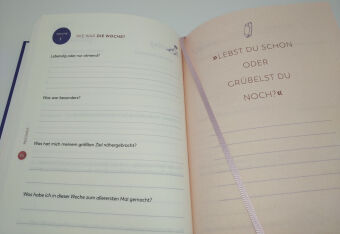 WIE WAR DIE WOCHE?
Lebendig oder nur atmend?
Was war besonders?
Was hat mich meinem größten Ziel nähergebracht?
Was habe ich in dieser Woche zum allerersten Mal gemacht?
»LEBST DU SCHON
ODER
GRÜBELST DU
NOCH?«